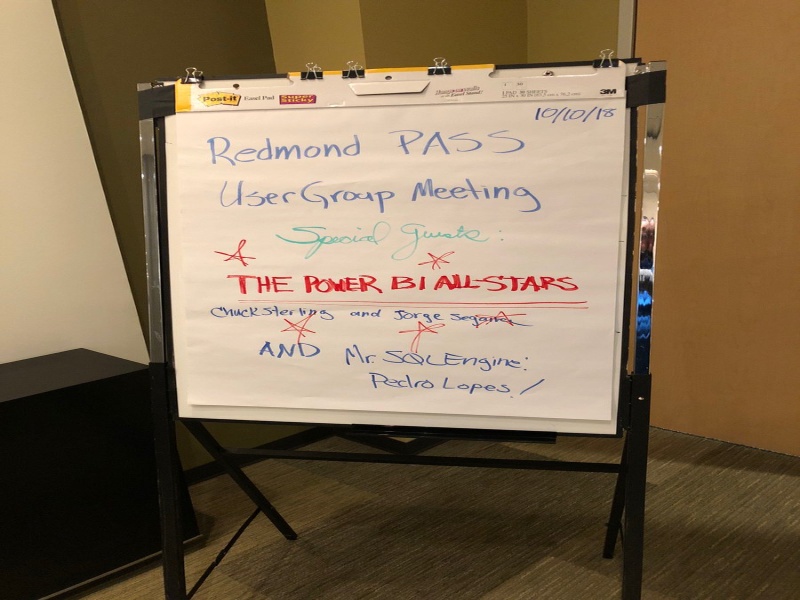 Post-it Easel Pad Super Sticky
3M
10/10/18
Redmond PASS
User Group Meeting
Special Guests:
THE POWER BI ALL-STARS
Chuck Sterling and Jorge Segarra
AND Mr. SQL Engine:
Pedro Lopes!